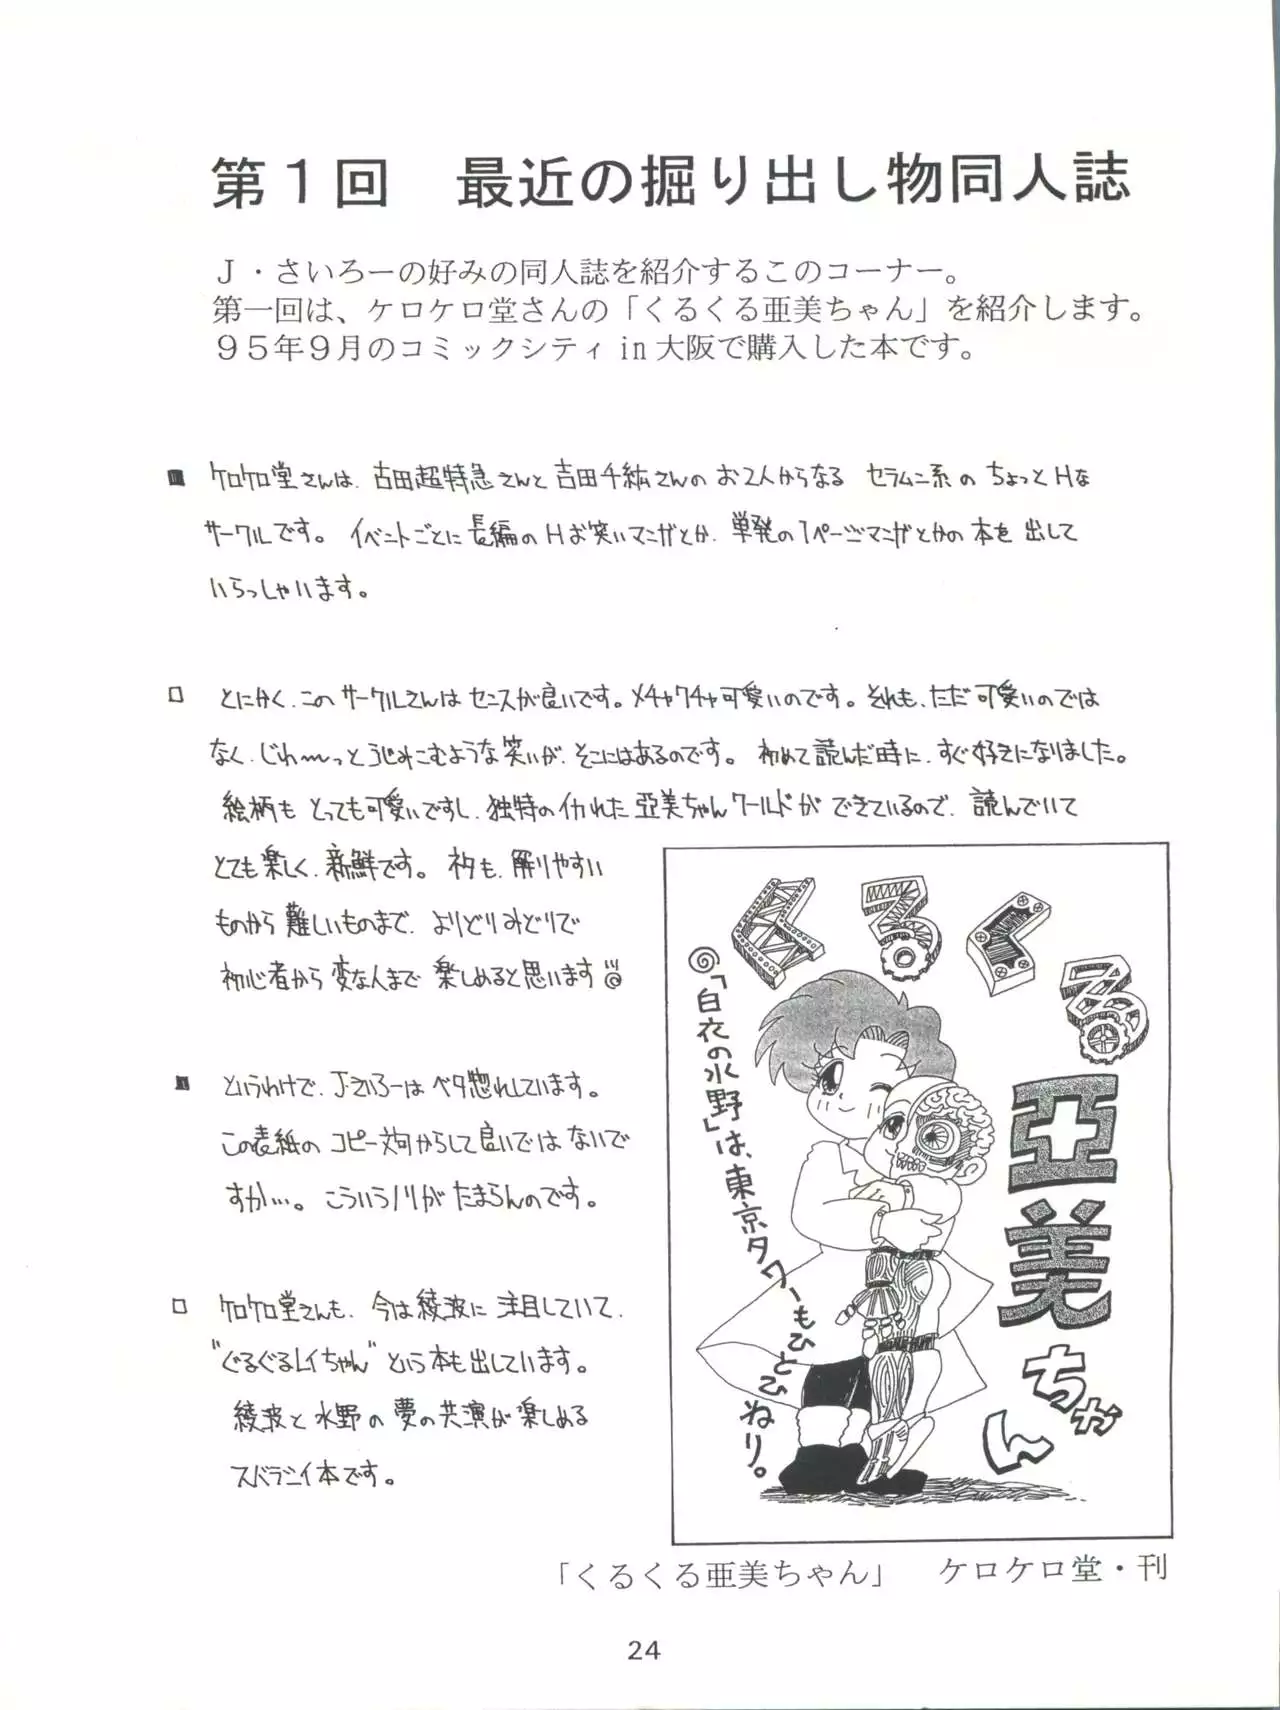 第１回　最近の掘り出し物同人誌
Ｊ・さいろーの好みの同人誌を紹介するこのコーナー。
第一回は、ケロケロ堂さんの「くるくる亜美ちゃん」を紹介します。
９５年９月のコミックシティ in 大阪で購入した本です。
■ ケロケロ堂さんは、古田超特急さんと吉田千紘さんのお2人からなる セラムン系の ちょっとHな
サークルです。 イベントごとに長編のHお笑いマンガとか、単発の1ページマンガとかの本を出して
いらっしゃいます。
□ とにかく、このサークルさんはセンスが良いです。メチャクチャ可愛いのです。それも、ただ可愛いのでは
なく、じわ〜っとうじみこむような笑いが、そこにはあるのです。 初めて読んだ時に、すぐ好きになりました。
絵柄も とっても可愛いですし、独特のイカれた 亜美ちゃんワールドが できているので、読んでいて
とても楽しく、新鮮です。 ネタも、解りやすい
ものから 難しいものまで、よりどりみどりで
初心者から変な人まで 楽しめると思います
■ というわけで、Jさいろーは ベタ惚れしています。
この表紙の コピー文句からして良いではないで
すか…。 こういうノリが たまらんのです。
□ ケロケロ堂さんも、今は綾波に 注目していて、
"ぐるぐるレイちゃん" という本も出しています。
綾波と 水野の 夢の共演が楽しめる
スバラシイ本です。
くるくる
亞美ちゃん
「白衣の水野」は、東京タワーもひとひねり。
「くるくる亜美ちゃん」　ケロケロ堂・刊
24